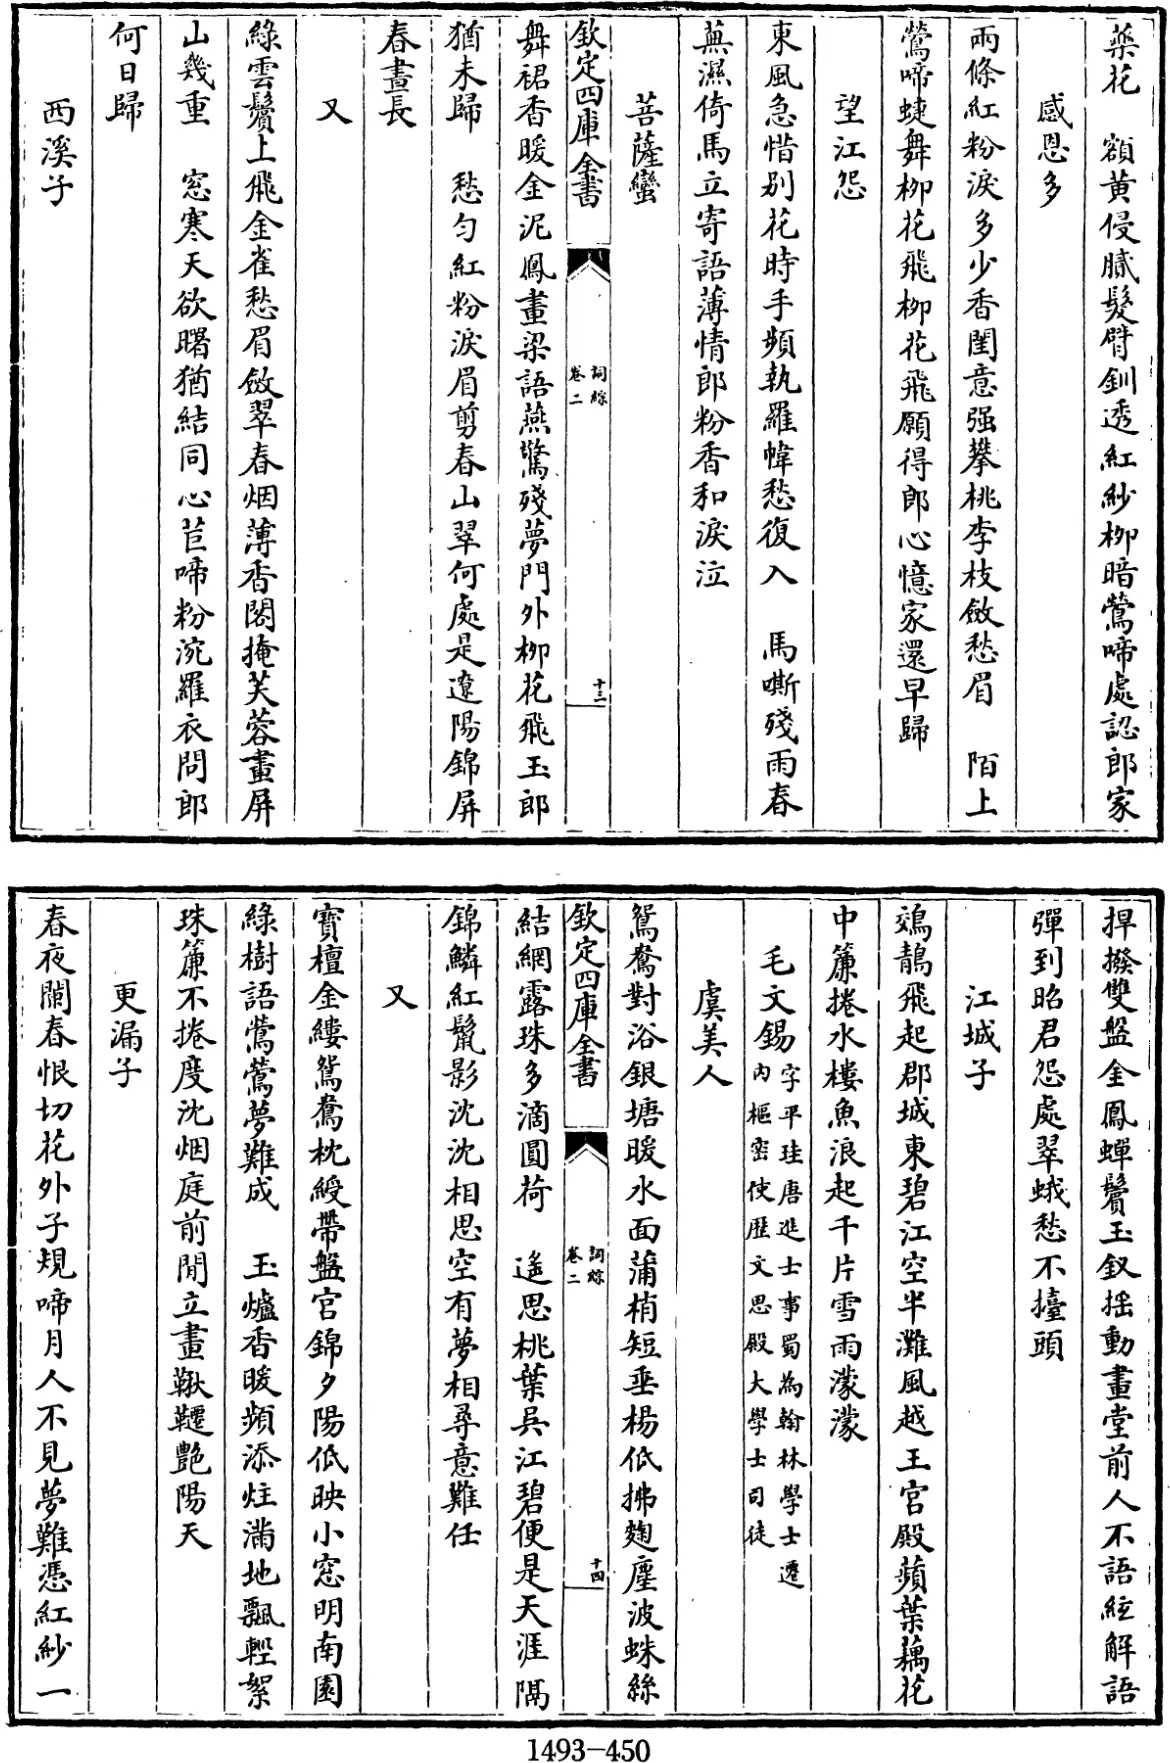 蘂花　額黃侵膩髮臂釧透紅紗柳暗鶯啼處認郎家
感恩多
兩條紅粉淚多少香閨意强攀桃李枝斂愁眉　陌上
鶯啼蜨舞柳花飛柳花飛願得郎心憶家還早歸
望江怨
東風急惜别花時手頻執羅幃愁復入　馬嘶殘雨春
蕪濕倚馬立寄語薄情郎粉香和淚泣
菩薩蠻
欽定四庫全書
詞綜
卷二
十三
舞裙香暖金泥鳳畫梁語燕驚殘夢門外柳花飛玉郎
猶未歸　愁勻紅粉淚眉剪春山翠何處是遼陽錦屏
春晝長
又
綠雲鬢上飛金雀愁眉斂翠春烟薄香閣掩芙蓉畫屏
山幾重　窓寒天欲曙猶結同心苣啼粉涴羅衣問郎
何日歸
西溪子
捍撥雙盤金鳳蟬鬢玉釵摇動畫堂前人不語絃解語
彈到昭君怨處翠蛾愁不擡頭
江城子
鵁鶄飛起郡城東碧江空半灘風越王宫殿蘋葉藕花
中簾捲水樓魚浪起千片雪雨濛濛
毛文錫字平珪唐進士事蜀為翰林學士遷
内樞密使歴文思殿大學士司徒
虞美人
鴛鴦對浴銀塘暖水面蒲梢短垂楊低拂麴塵波蛛絲
欽定四庫全書
詞綜
卷二
十四
結網露珠多滴圓荷　遥思桃葉吳江碧便是天涯隔
錦鱗紅鬣影沈沈相思空有夢相尋意難任
又
寶檀金縷鴛鴦枕綬帶盤宫錦夕陽低映小窓明南園
綠樹語鶯鶯夢難成　玉爐香暖頻添炷滿地飄輕絮
珠簾不捲度沈烟庭前閒立畫鞦韆艷陽天
更漏子
春夜闌春恨切花外子規啼月人不見夢難憑紅紗一
1493-450